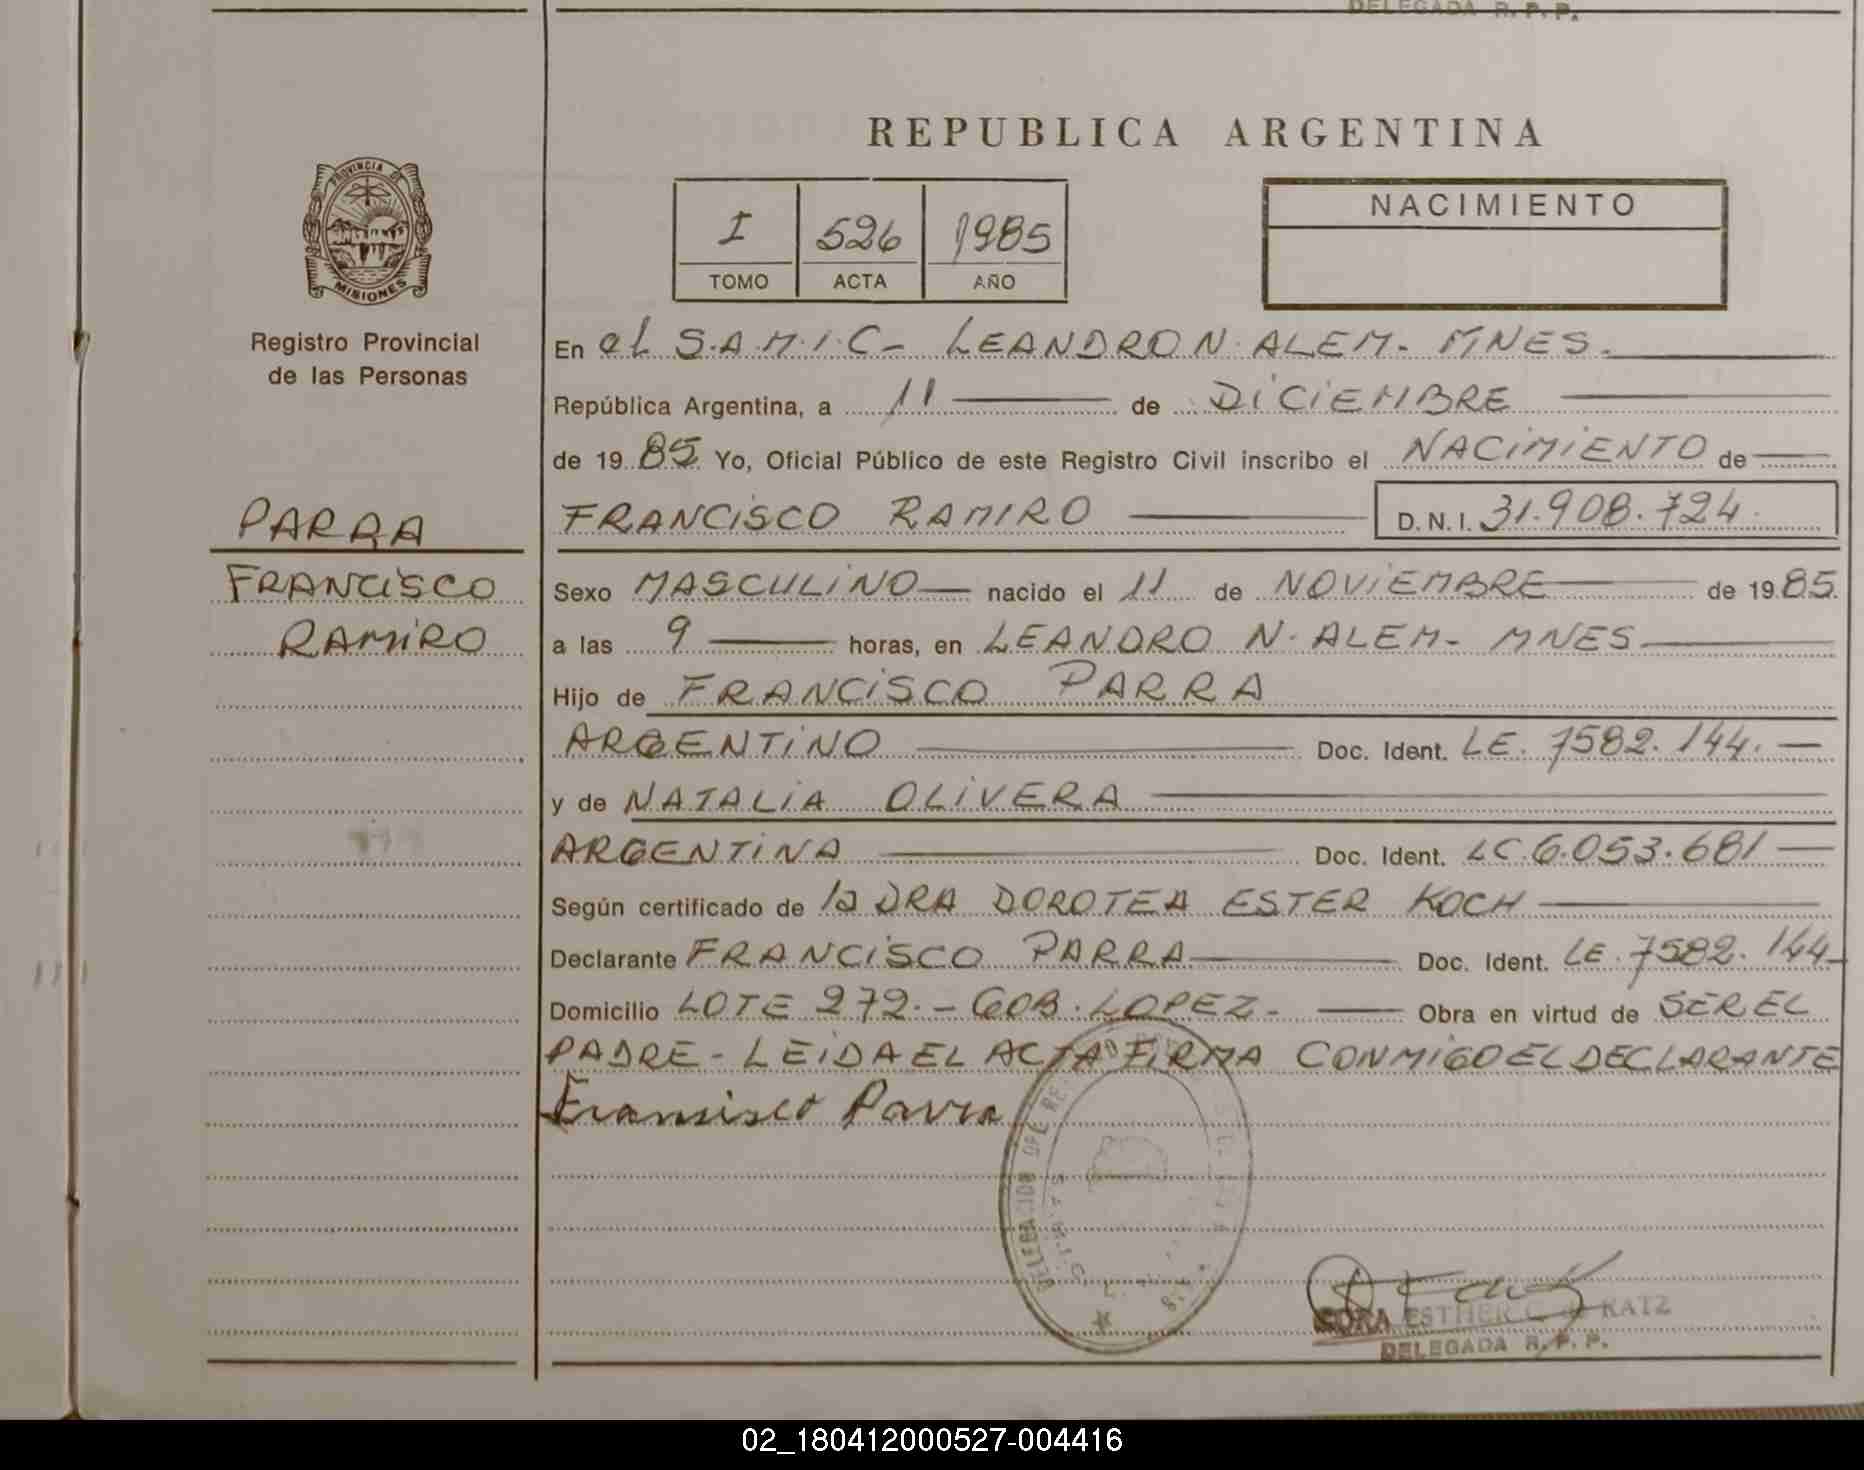 DELEGADA R. P. P.
REPUBLICA ARGENTINA
PROVINCIA DE
MISIONES
I 526 1985
TOMO ACTA AÑO
NACIMIENTO
Registro Provincial
de las Personas
En el S.A.M.I.C- LEANDRO N. ALEM- MNES.
República Argentina, a 11 de DICIEMBRE
de 1985 Yo, Oficial Público de este Registro Civil inscribo el NACIMIENTO de
PARRA
FRANCISCO RAMIRO D.N.I. 31.908.724
FRANCISCO
RAMIRO
Sexo MASCULINO nacido el 11 de NOVIEMBRE de 1985.
a las 9 horas, en LEANDRO N. ALEM- MNES
Hijo de FRANCISCO PARRA
ARGENTINO Doc. Ident. LE. 7582.144.
y de NATALIA OLIVERA
ARGENTINA Doc. Ident. LC.6.053.681
Según certificado de la DRA DOROTEA ESTER KOCH
Declarante FRANCISCO PARRA Doc. Ident. LE. 7582.144
Domicilio LOTE 272.- GOB. LOPEZ. Obra en virtud de SER EL
PADRE- LEIDA EL ACTA FIRMA CONMIGO EL DECLARANTE
Fransisco Parra
DELEGACION DEL
ESTHER C. KATZ
DELEGADA R. P. P.
02_180412000527-004416